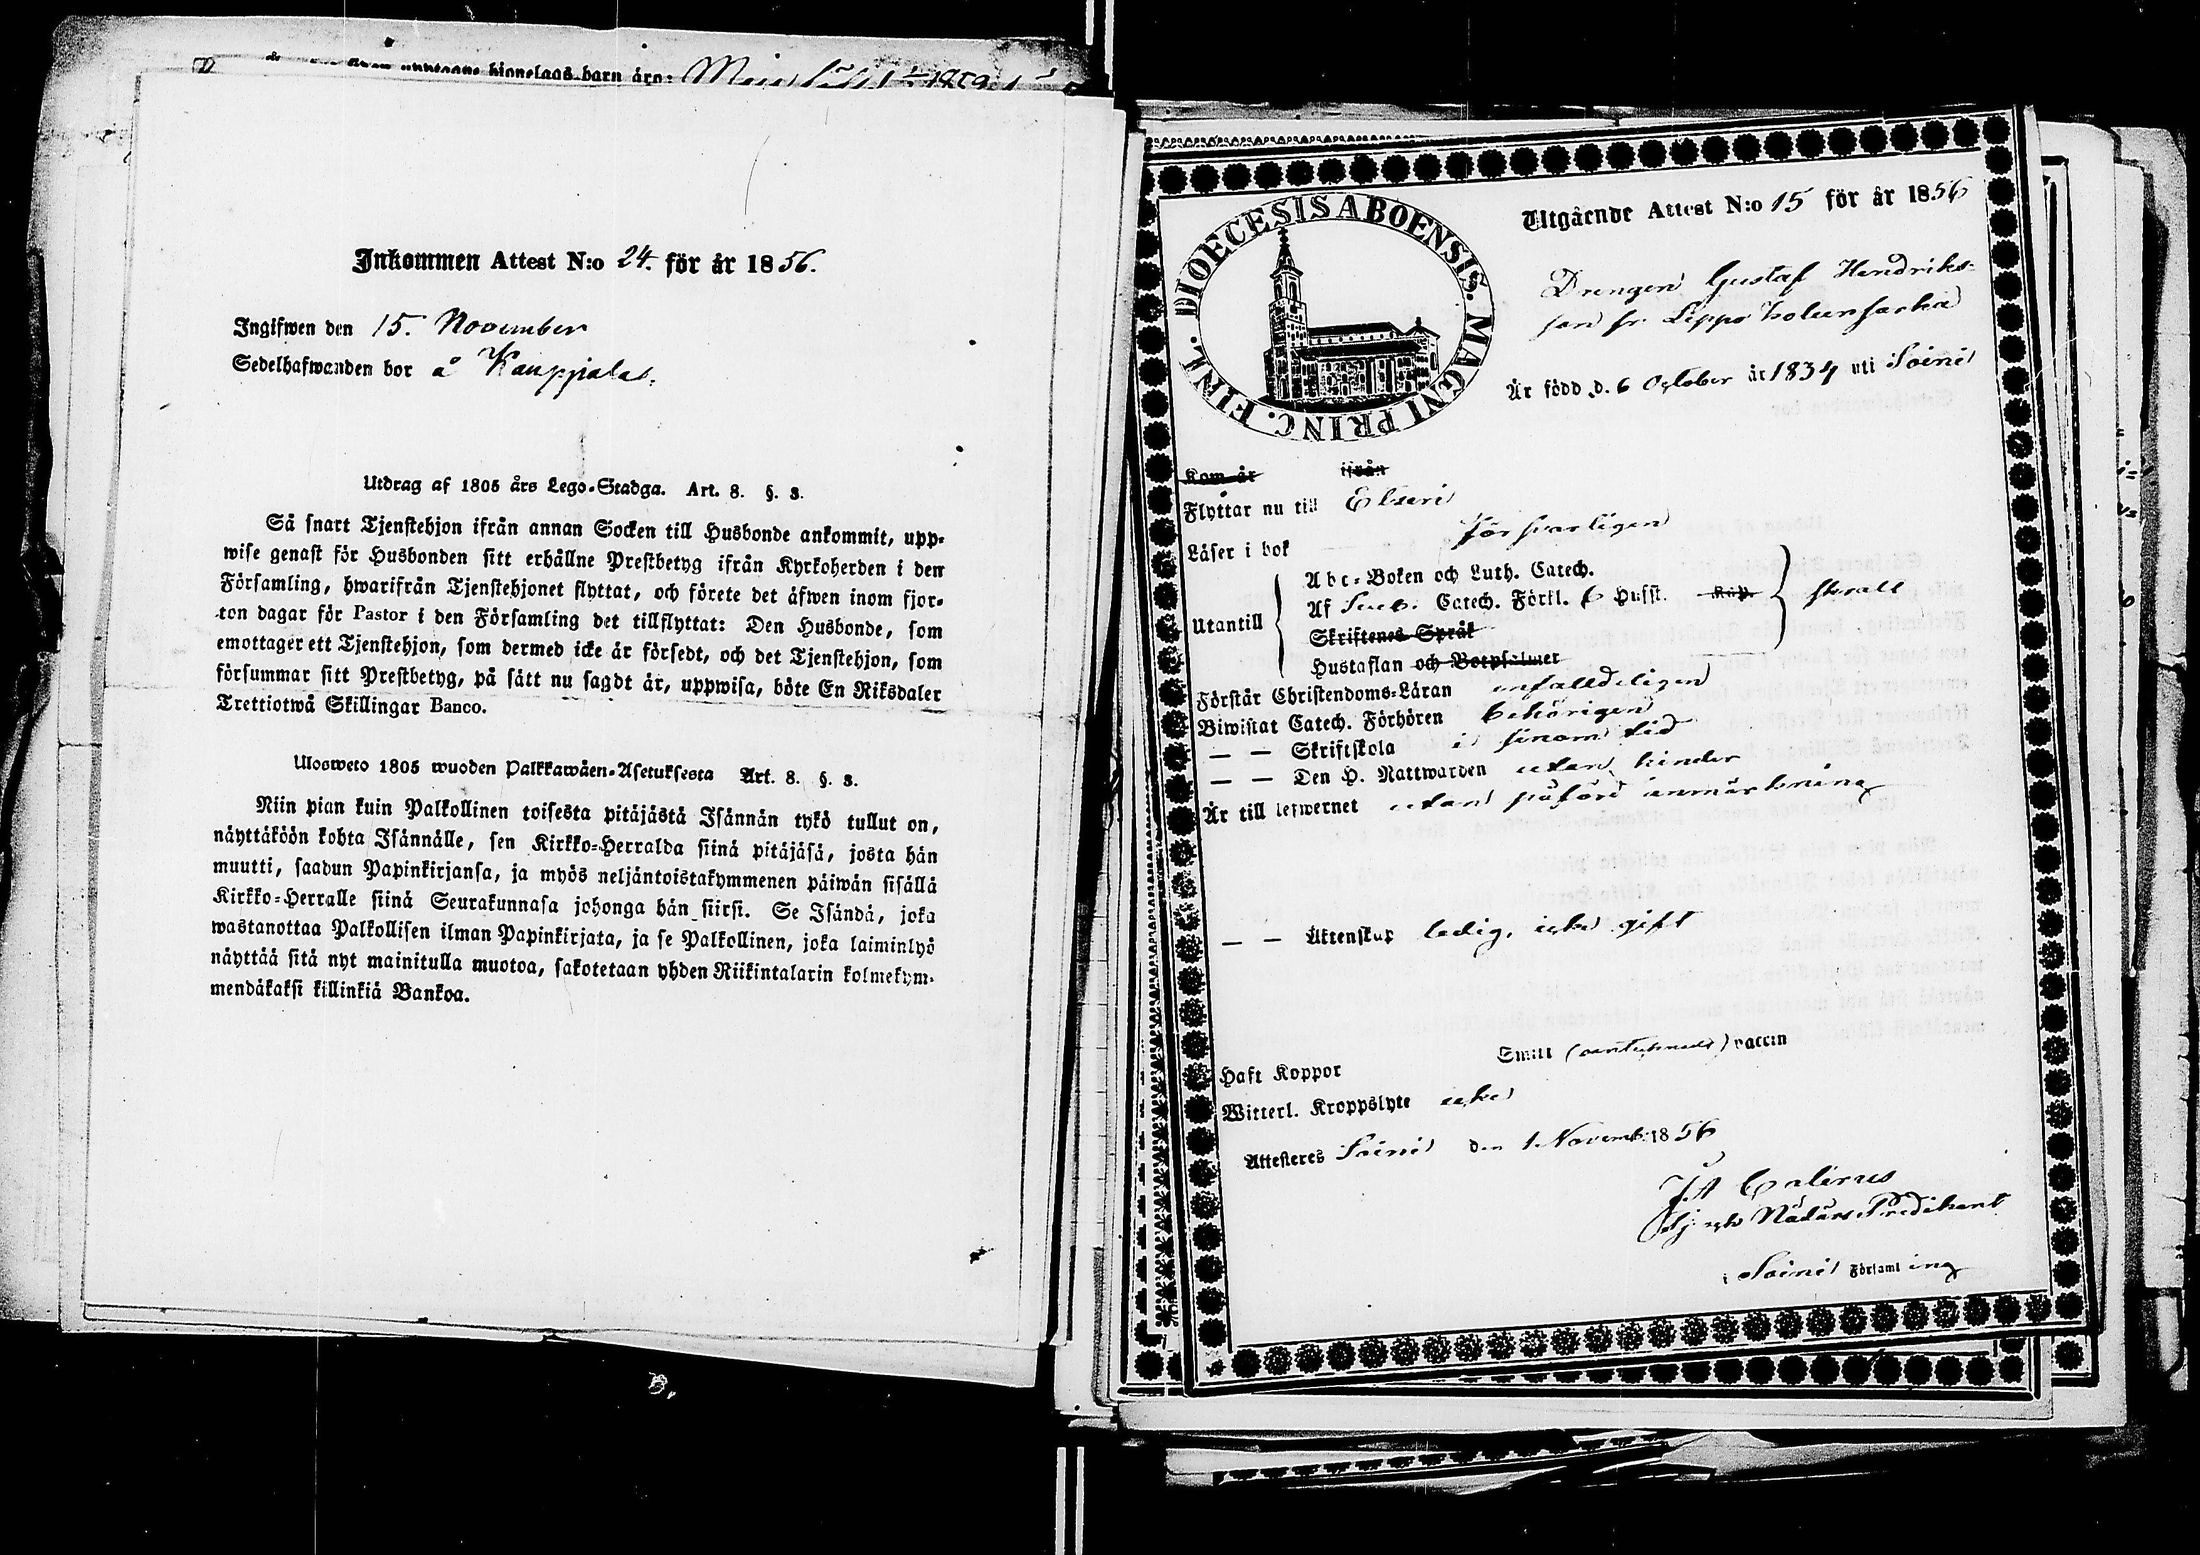 upptagne hionelags barn äro:
Inkommen Attest N:o 24. för år 1856.
Ingifwen den 15. November
Sedelhafwanden bor å Kauppialas.
Utdrag af 1805 års Lego-Stadga. Art. 8. §. 3.
Så snart Tjenstehjon ifrån annan Socken till Husbonde ankommit, upp-
wise genast för Husbonden sitt erhållne Prestbetyg ifrån Kyrkoherden i den
Församling, hwarifrån Tjenstehjonet flyttat, och förete det äfwen inom fjor-
ton dagar för Pastor i den Församling det tillflyttat: Den Husbonde, som
emottager ett Tjenstehjon, som dermed icke är försedt, och det Tjenstehjon, som
försummar sitt Prestbetyg, på sätt nu sagdt är, uppwisa, böte En Riksdaler
Trettiotwå Skillingar Banco.
Ulosweto 1805 wuoden Palkkawäen-Asetuksesta Art. 8. §. 3.
Niin pian kuin Palkollinen toisesta pitäjästä Isännän tykö tullut on,
näyttäköön kohta Isännälle, sen Kirkko-Herralda siinä pitäjäsä, josta hän
muutti, saadun Papinkirjansa, ja myös neljäntoistakymmenen päiwän sisällä
Kirkko-Herralle siinä Seurakunnasa johonga hän siirsi. Se Isändä, joka
wastanottaa Palkollisen ilman Papinkirjata, ja se Palkollinen, joka laiminlyö
näyttää sitä nyt mainitulla muotoa, sakotetaan yhden Riikintalarin kolmekym-
mendäkaksi killinkiä Bankoa.
DIOECESIS ABOENSIS. MAGNI PRINC. FINL.
Utgående Attest N:o 15 för år 1856
Drengen Gustaf Hendriks-
son fr. Leppo
Är född d. 6 October år 1834 uti Soini
Kom år ifrån
Flyttar nu till Etseri
Läser i bok försvarligen
Utantill
Abc-Boken och Luth. Catech.
Af Sveb. Catech. Förkl. 6 Hufst. Kap. svalt
Skriftenes Språk
Hustaflan och Botpsalmer
Förstår Christendoms-Läran enfalldeligen
Biwistat Catech. Förhören behörigen
— — Skriftskola i sinom tid
— — Den H. Nattwarden utan hinder
Är till lefwernet utan påförd anmärkning
— — Äktenskap ledig, icke gift
Haft Koppor Smitt (antecknadt) vaccin
Witterl. Kroppslyte icke
Attesteres Soini den 1 Novemb. 1856
J. A. Calenius
Nådårs Predikant
i Soini Församling